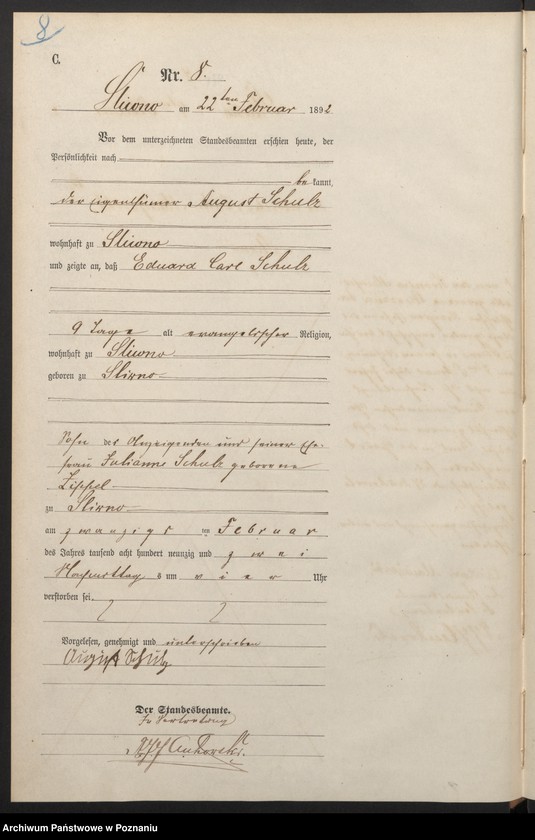 8
C.
Nr. 8.
Sliwno am 22ten Februar 1892
Vor dem unterzeichneten Standesbeamten erschien heute, der
Persönlichkeit nach
be kannt,
der Eigenthümer August Schulz
wohnhaft zu Sliwno
und zeigte an, daß Eduard Carl Schulz
9 Tage alt evangelischer Religion,
wohnhaft zu Sliwno
geboren zu Sliwno
Sohn des Anzeigenden und seiner Ehe-
frau Julianne Schulz geborene
Zippel
zu Sliwno
am zwanzigs ten Februar
des Jahres tausend acht hundert neunzig und zwei
Nachmittag s um vier Uhr
verstorben sei.
Vorgelesen, genehmigt und unterschrieben
August Schulz
Der Standesbeamte.
In Vertretung
Archiwum Państwowe w Poznaniu